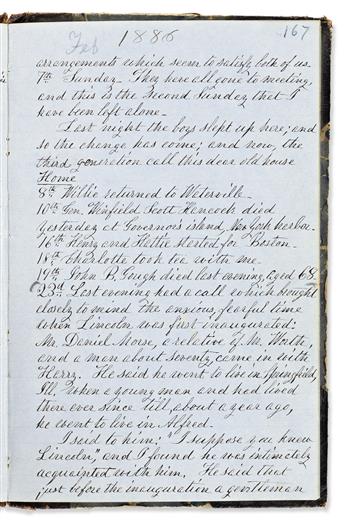 Feb 1886 167
arrangements which seem to satisfy both of us.
7th Sunday. They have all gone to meeting,
and this is the second Sunday that I
have been left alone.
Last night the boys slept up here; and
so the change has come; and now, the
third generation call this dear old house
Home.
8th Willie returned to Waterville.
10th Gen. Winfield Scott Hancock died
yesterday at Governor's island, New York harbor.
16th Henry and Hattie started for Boston.
18th Charlotte took tea with me.
19th John B. Gough died last evening, aged 68.
23d Last evening had a call which brought
closely to mind the anxious fearful time
when Lincoln was first inaugurated:
Mr. Daniel Morse, a relative of M. Worth,
and a man about seventy came in with
Harry. He said he went to live in Springfield,
Ill. when a young man and had lived
there ever since till, about a year ago,
he went to live in Alfred.
I said to him; "I suppose you knew
Lincoln," and I found he was intimately
acquainted with him. He said that
just before the inauguration a gentleman